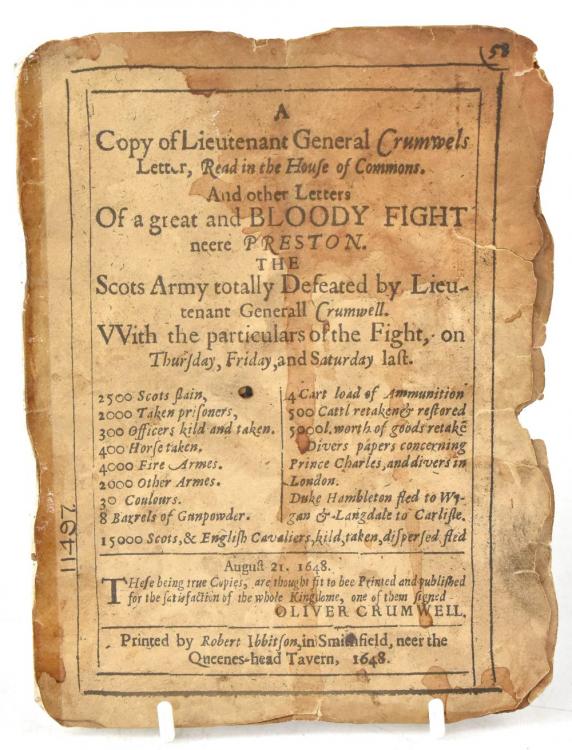 58
A
Copy of Lieutenant General Crumwels
Letter, Read in the House of Commons.
And other Letters
Of a great and BLOODY FIGHT
neere PRESTON.
THE
Scots Army totally Defeated by Lieu-
tenant Generall Crumwell.
VVith the particulars of the Fight, on
Thurſday, Friday, and Saturday laſt.
2500 Scots ſlain,
2000 Taken priſoners,
300 Officers kild and taken.
400 Horſe taken.
4000 Fire Armes.
2000 Other Armes.
30 Coulours.
8 Barrels of Gunpowder.
4 Cart load of Ammunition
500 Cattl retaken & reſtored
5000l. worth of goods retakē
Divers papers concerning
Prince Charles, and divers in
London.
Duke Hambleton fled to Wy-
gan & Langdale to Carliſle.
15000 Scots, & Engliſh Cavaliers, kild, taken, diſperſed, fled
Auguſt 21. 1648.
THeſe being true Copies, are thought fit to bee Printed and publiſhed
for the ſatisfaction of the whole Kingdome, one of them ſigned
OLIVER CRUMWELL.
Printed by Robert Ibbitſon, in Smithfield, neer the
Queenes-head Tavern, 1648.
11497